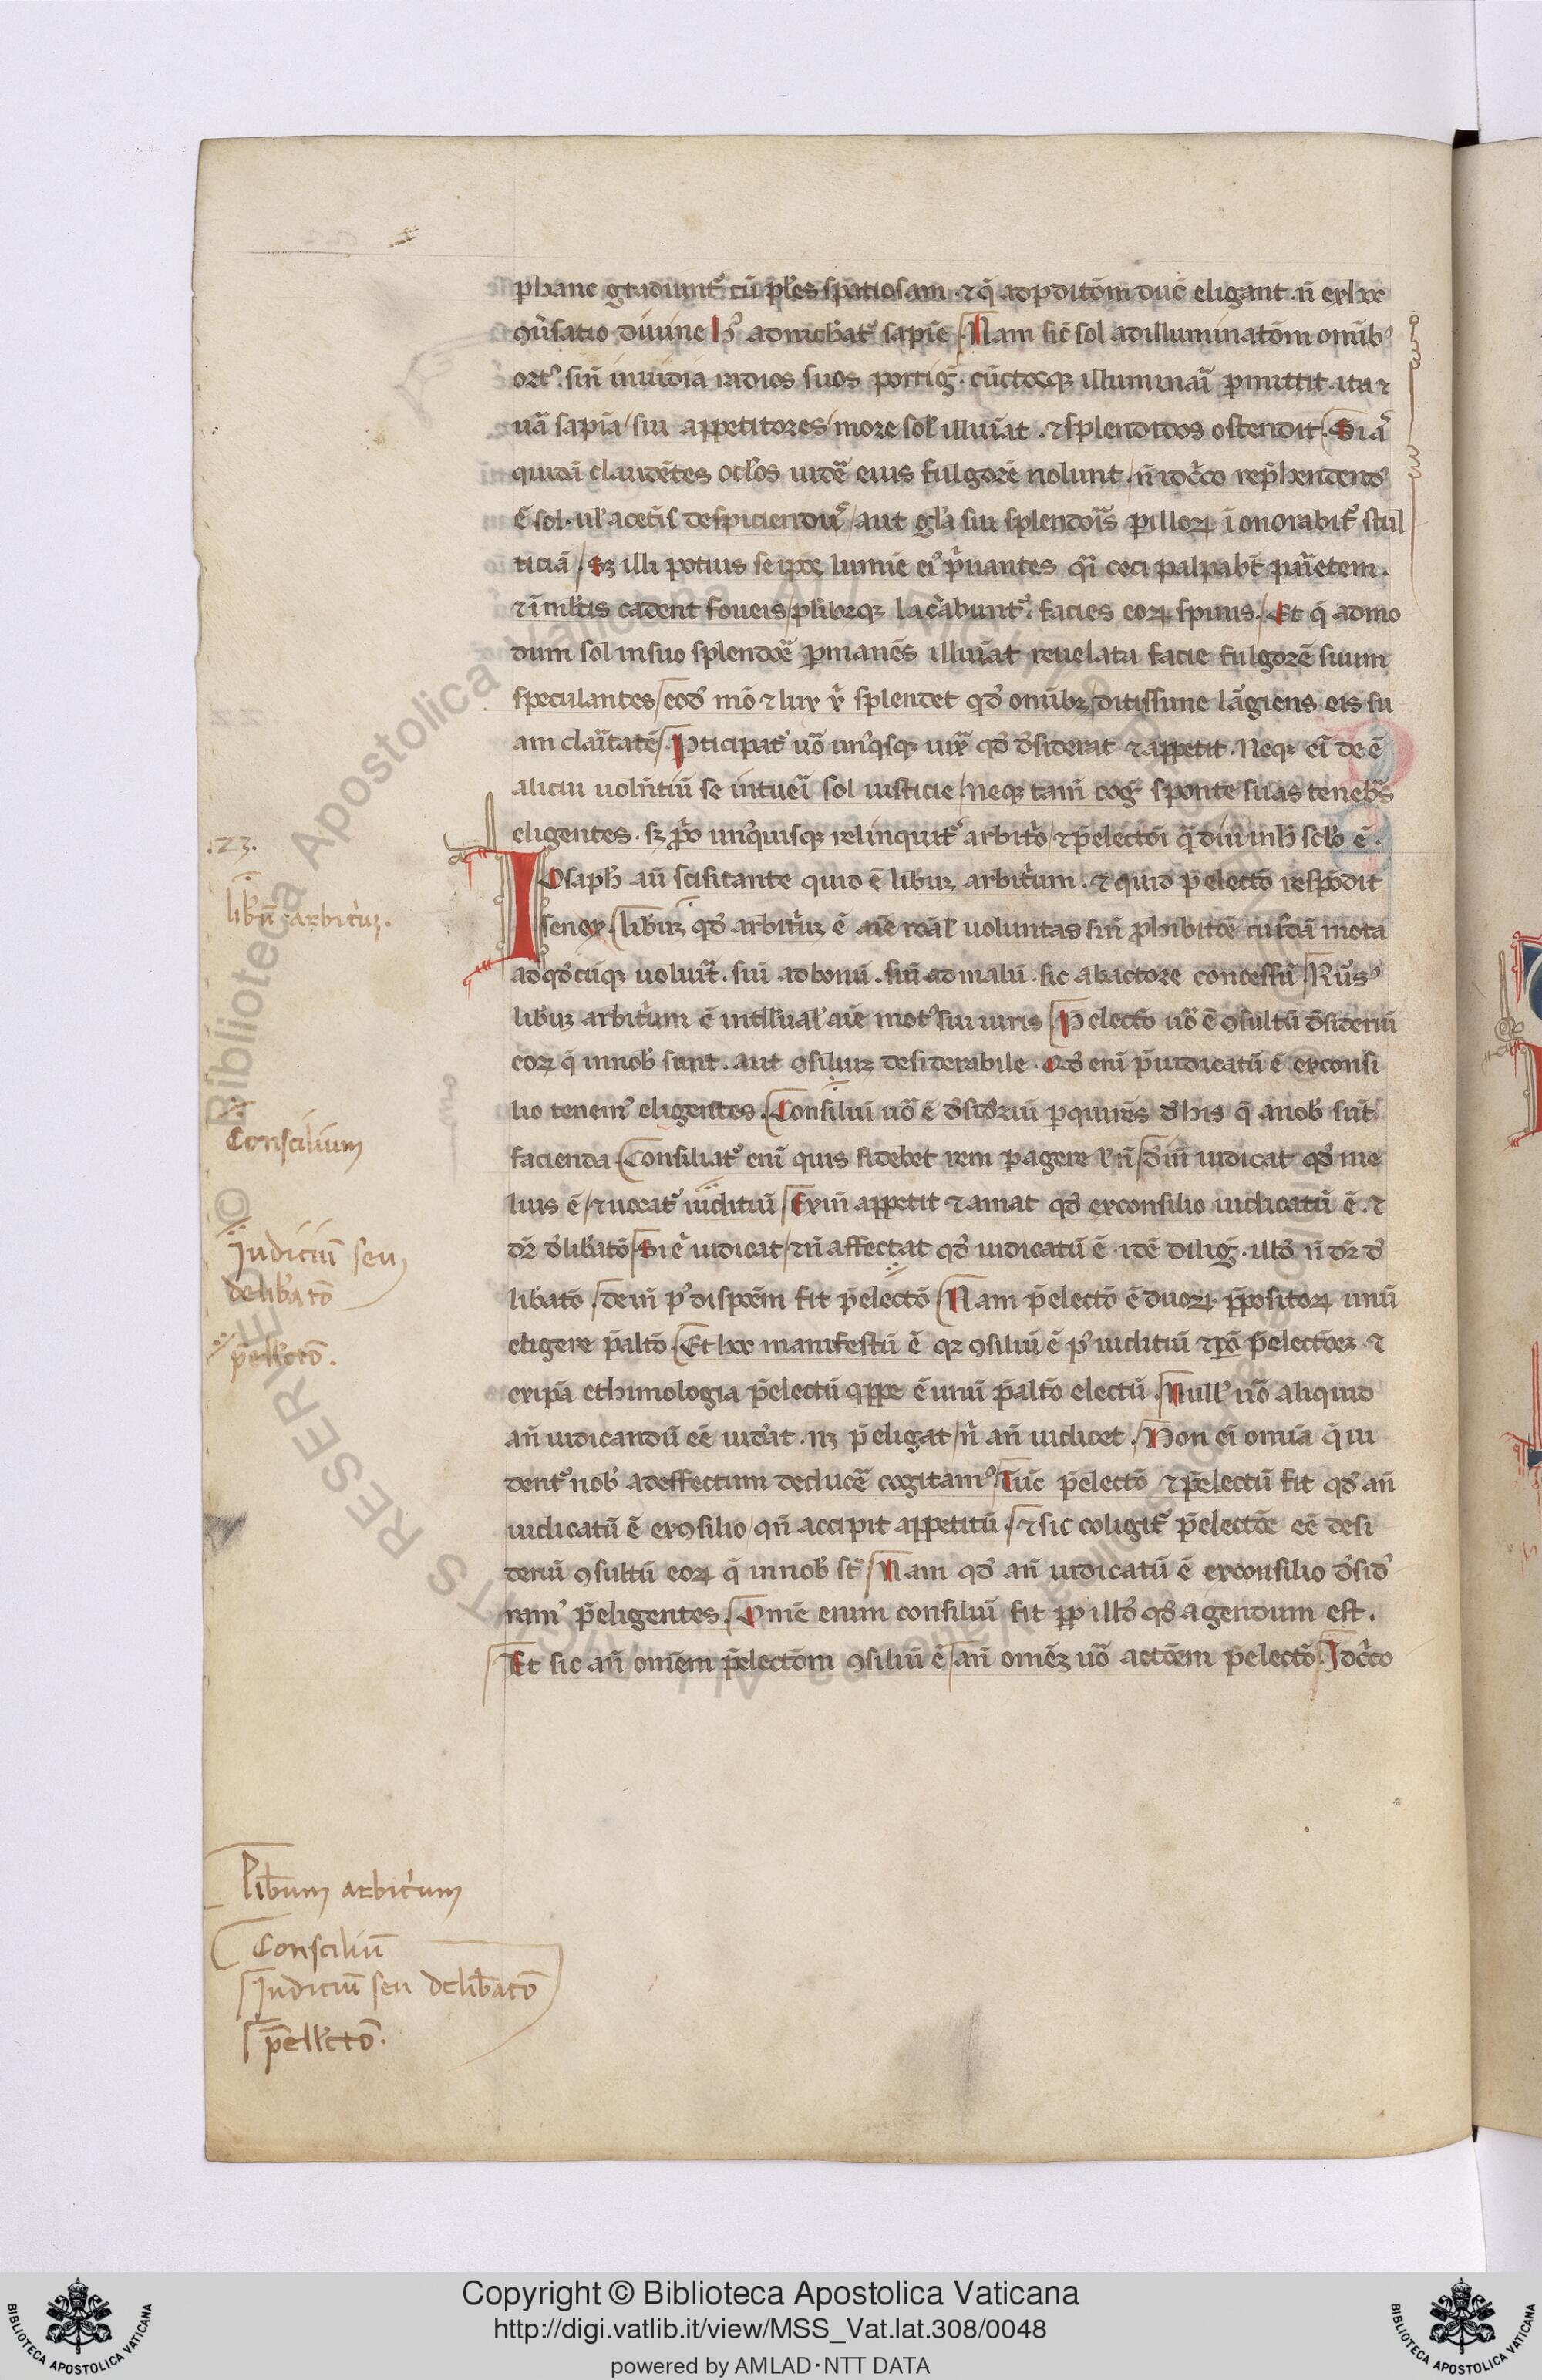 phanc gradiunt᷒ cū pl̄es spatiosam ⁊ q̄ adꝑditōm duc̄ eligant n̄ ex hoc
ꝯūsatio diuine h᷒ adnichilat᷒ sapiē Nam sic̄ sol adilluminatōm omib᷒
ort᷒ sin̄ inuidia radios suos porriḡ. cūctosq illuminar̄ ꝑmittit. ita ⁊
uā sapīa / sui appetitores / more sol̄ illuīat. ⁊ splendidos ostendit. Si a᷒
quidā claudētes ocl̄os uidē eius fulgorē nolunt / n̄ idc̄co rep̄hendend᷒
ē sol. ul̄ acet̄is despiciendus / aut gl̄a sui splendoīs ꝑ illoꝝ inonorabit᷒ stul
ticiā / sꝫ illi potius seip̄os lumīe ei᷒ p̄uantes qi ceci palpabt̄ parietem.
⁊ī mult̄is cadent foueis / pl̄ibꝫq lac̄abunt᷒ facies eoꝝ spinis. / Et q̄ admo
dum sol insuo splendoē ꝑmanēs illuīat reuelata facie fulgorē suum
speculantes / eod̄ mō ⁊ lux xp̄i splendet qd̄ omibꝫ / ditissime largiens eis su
am claritatē / Pticipat᷒ uō unq̇sq iuxͣ qd̄ d̄siderat ⁊ appetit. Neq eī de ē
alicui uolntiū se intueri sol iusticie / neq tam̄ coḡ sponte suas tenebras
eligentes. sꝫ ꝓp̄o unq̇uisq relinquit᷒ arbit̄o / ⁊ p̄electōi q̄ diu inh̄ scl̄o ē.
IOsaph̄ aū scisitante quid ē libꝫ arbit̄um. ⁊ quid p̄electō respōdit
senex. libꝫ qd̄ arbit̄ꝫ ē aīe rōal̄ uoluntas sin̄ ꝓhibitōe cuiusdā mota
adqd̄cūq uoluit̄. siu adbonū. siu ad malū. sic abactore concessū Rus᷒
libꝫ arbit̄um ē intll̄ual̄ aīe mot᷒ sui iuris P̄electō uō ē ꝯsultū d̄sideriū
eoꝝ q̄ innob̄ sunt. aut ꝯsiliuꝫ desiderabile. Qd̄ enī p̄iudicatū ē exconsi
lio tenem᷒ eligentes. Consiliū uō ē d̄sid̄riū ꝑquirēs d̄ his q̄ anob̄ sut̄
facienda. Consiliat᷒ enī quis si debet rem ꝑagere ul̄ n̄ / dein̄ iudicat qd̄ me
lius ē / ⁊ uocat᷒ iuditiū Exin̄ appetit ⁊ amat qd̄ exconsilio iudicatū ē. ⁊
dr̄ d̄libatō Si ē iudicat / ⁊ n̄ affectat qd̄ iudicatū ē idē diliḡ. illd̄ n̄ dr̄ d̄
libatō. dein̄ p᷒ disposit̄ōem fit p̄electō Nam p̄electō ē duoꝝ p̄positoꝝ unū
eligere p̄ altō. Et hoc manifestū ē qꝛ ꝯsiliū ē p᷒ iuditiū ⁊ p᷒ p̄electōeꝫ ⁊
exip̄a ethimologia p̄electū q̄ppe ē unū p̄ altō electū. Null᷒ uō aliquid
an̄ iudicandū eē iud̄cat. nꝫ p̄eligat / n̄ an̄ iudicet. Non eī omīa q̄ ui
dent᷒ nob̄ adeffectum ducē cogitam᷒. Tūc p̄electō ⁊ p̄electū fit qd̄ an̄
iudicatū ē exꝯsilio / qn̄ accipit appetitū. ⁊ sic coligit᷒ p̄electōē eē desi
deriū ꝯsultū eoꝝ q̄ innob̄ st̄ Nam qd̄ an̄ iudicatū ē exconsilio d̄sid̄
ram᷒ p̄eligentes. Omē enim consiliū fit ꝓp illd̄ qd̄ agendum est.
Et sic an̄ omēm p̄electōm ꝯsiliū ē an̄ omēꝫ uō actōem p̄electō. Idc̄co
.23.
lib̄ū arbit̄iꝫ.
Conscilium
Judiciū seu
delib̄atō
p̄ell̄ctō.
Lib̄um arbit̄ium
Consciliū
Judiciū seu delib̄atō
p̄ell̄ctō.
© Biblioteca Apostolica Vaticana
Copyright © Biblioteca Apostolica Vaticana
http://digi.vatlib.it/view/MSS_Vat.lat.308/0048
powered by AMLAD·NTT DATA
BIBLIOTECA APOSTOLICA VATICANA
BIBLIOTECA APOSTOLICA VATICANA